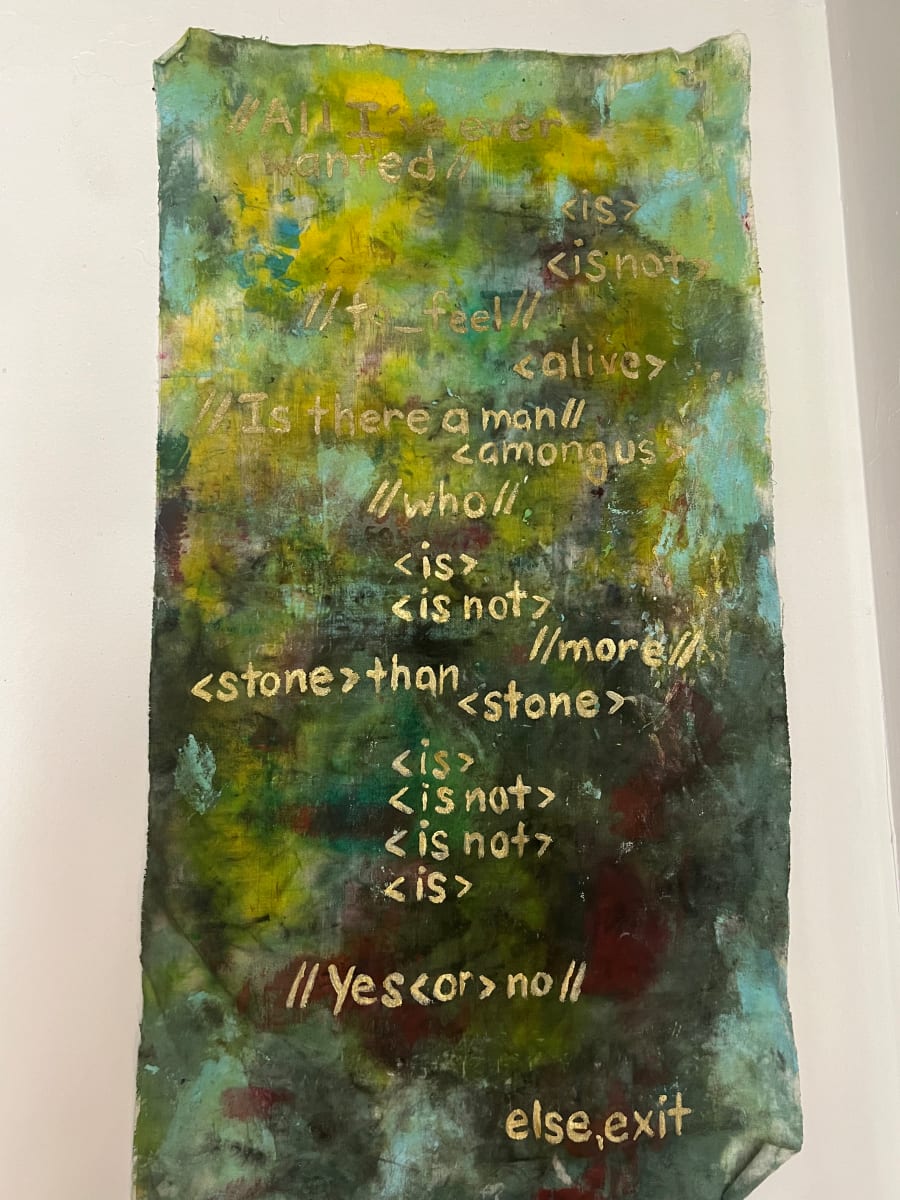 //All I've ever
wanted//
<is>
<is not>
//to_feel//
<alive>
//Is there a man//
<among us>
//who//
<is>
<is not>
//more//
<stone>than
<stone>
<is>
<is not>
<is not>
<is>
//Yes<or>no//
else,exit